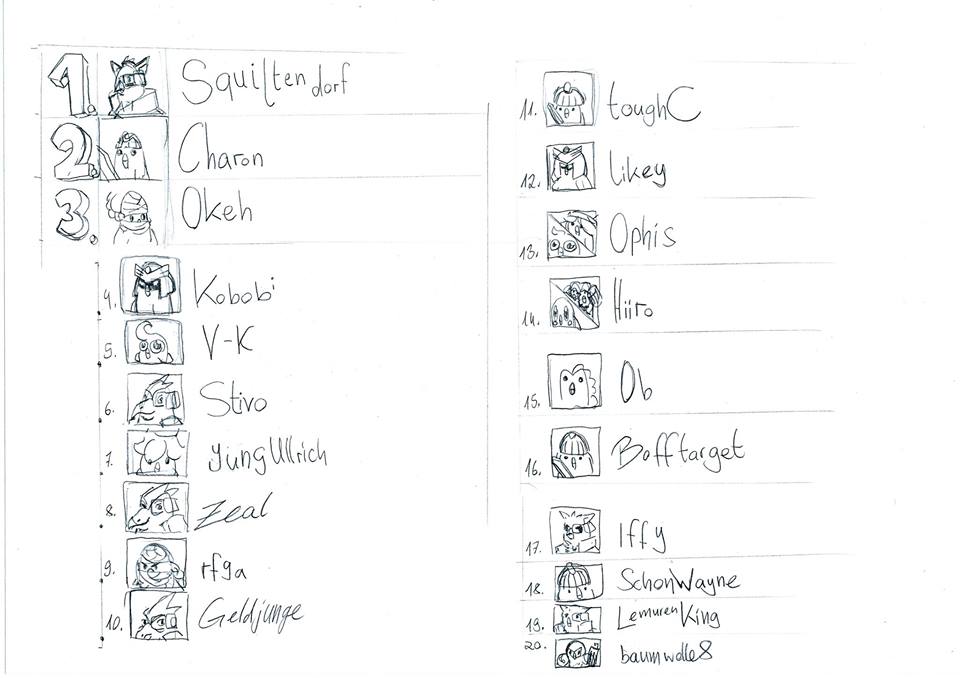 1. Squiltendorf
2. Charon
3. Okeh
4. Kobobi
5. V-K
6. Stivo
7. yungUllrich
8. Zeal
9. rfga
10. Geldjunge
11. toughC
12. Likey
13. Ophis
14. Hiiro
15. Ob
16. Bofftarget
17. Iffy
18. SchonWayne
19. LemurenKing
20. baumwolle8